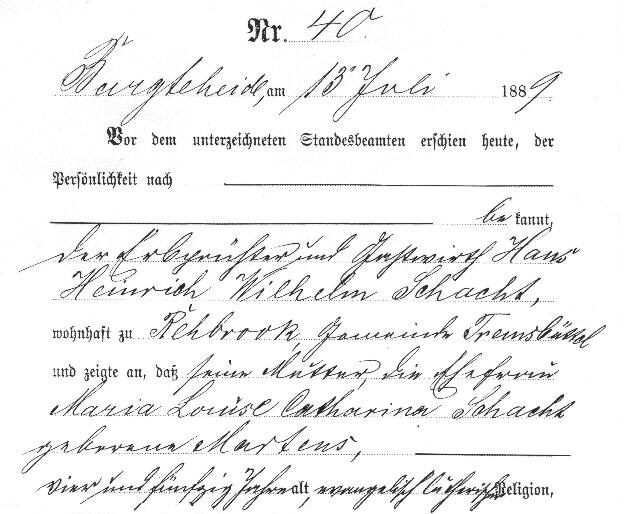 Nr. 40.
Bargteheide, am 13. Juli 1889.
Vor dem unterzeichneten Standesbeamten erschien heute, der
Persönlichkeit nach
bekannt,
der Erbpächter und Gastwirth Hans
Heinrich Wilhelm Schacht,
wohnhaft zu Rehbrook, Gemeinde Tremsbüttel
und zeigte an, daß seine Mutter, die Ehefrau
Maria Louise Catharina Schacht
geborene Martens,
vier und fünfzig Jahre alt, evangelisch lutherischer Religion,